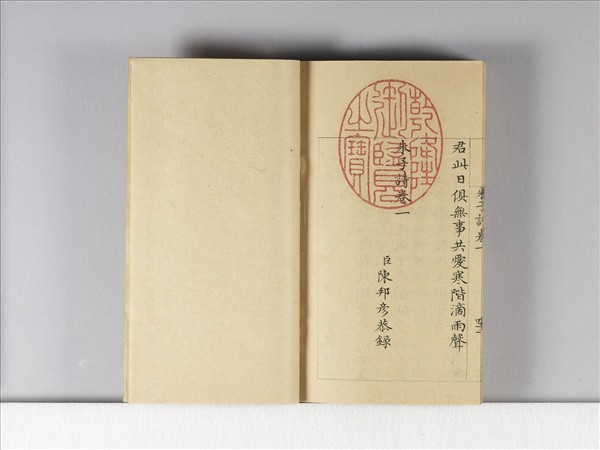 朱子詩卷一
君此日俱無事共愛寒階滴雨聲
朱子詩卷一
臣陳邦彥恭錄
乾隆御覽之寶